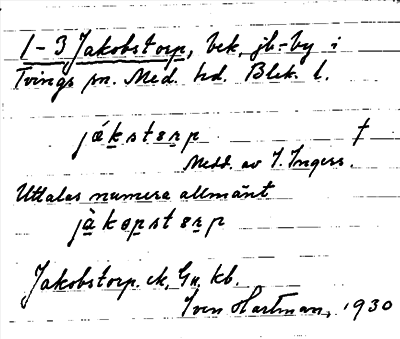 1-3 Jakobstorp, bek, jb-by i
Tvings sn. Med. hd. Blek. l.
jákstɛrp †
Medd. av I. Ingers.
Uttalas numera allmänt
jàkɵpstɛrp
Jakobstorp. ek, Gn. kb.
Sven Hartman, 1930